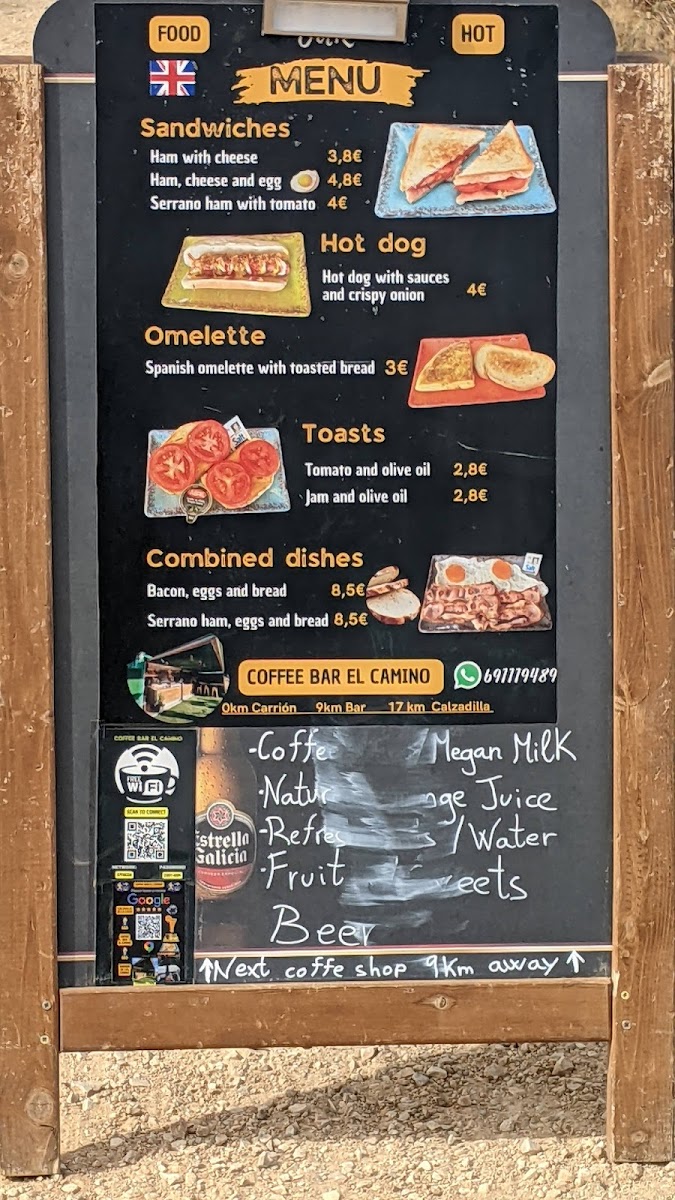 FOOD
HOT
Our
MENU
Sandwiches
Ham with cheese 3,8€
Ham, cheese and egg 4,8€
Serrano ham with tomato 4€
Hot dog
Hot dog with sauces
and crispy onion 4€
Omelette
Spanish omelette with toasted bread 3€
Toasts
Tomato and olive oil 2,8€
Jam and olive oil 2,8€
Salt
Combined dishes
Bacon, eggs and bread 8,5€
Serrano ham, eggs and bread 8,5€
Salt
COFFEE BAR EL CAMINO
691779489
0km Carrión 9km Bar 17 km Calzadilla
COFFEE BAR EL CAMINO
FREE
Wi Fi
SCAN TO CONNECT
Google
Estrella
Galicia
-Coffe Megan Milk
-Natur nge Juice
-Refre s / Water
-Fruit eets
Beer
↑Next coffe shop 9Km away ↑